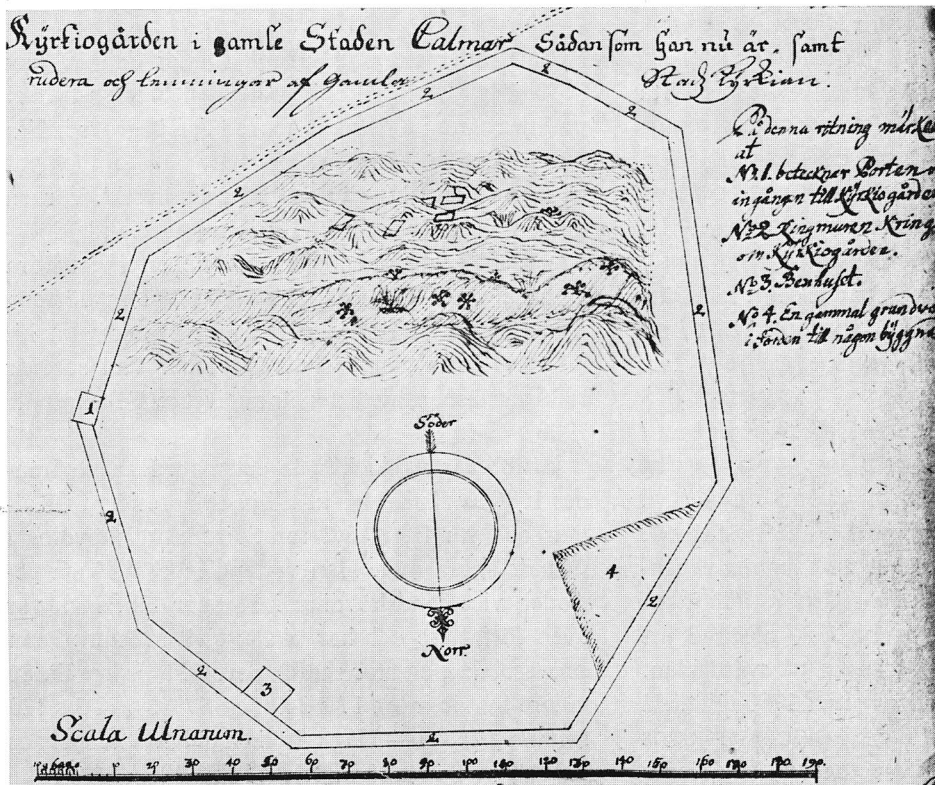 Kÿrkiogården i gamle Staden Calmar Sådan som han nu är. samt
rudera och lemningar af Gamla Stadz Kÿrkian.
denna ritning märkes
at
No 1. betecknar Porten
ingången till Kÿrkiogården
No 2 Ringmuren Kring
om Kÿrkiogården.
No 3. Benhuset.
No 4. En gammal grundva
i Jorden till någon bÿggna
2
2
2
2
2
2
2
1
Söder
2
4
2
Norr.
2
3
2
Scala Ulnarum.
10 20 30 40 50 60 70 80 90 100 110 120 130 140 150 160 170 180 190